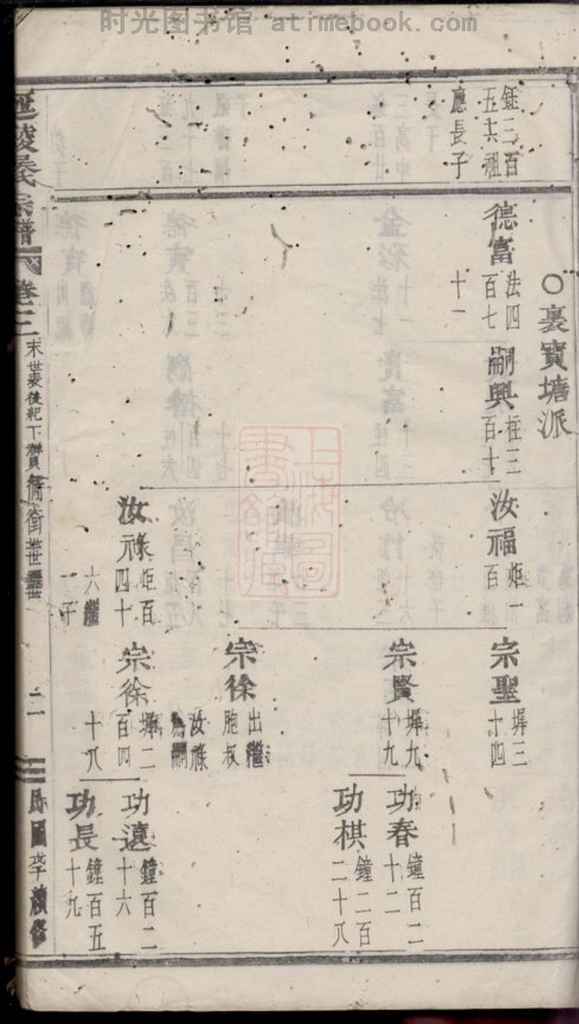 时光图书馆 atimebook.com
鈺三百
五其祖
應長子
○裏寶塘派
德富
法四
百七
十一
嗣興
枉三
百十
汝福
炬一
百
汝祿
炬百
四十
六繼
一子
宗聖
墀三
十四
宗賢
墀九
十九
宗徐
出繼
胞叔
汝祿
爲嗣
宗徐
墀二
百四
十八
功春
鐘百二
十二
功棋
鐘二百
二十八
功遠
鐘百二
十六
功長
鐘百五
十九
宗譜
卷三
末世表後紀下贊
二
民國
續修
上海圖書館藏